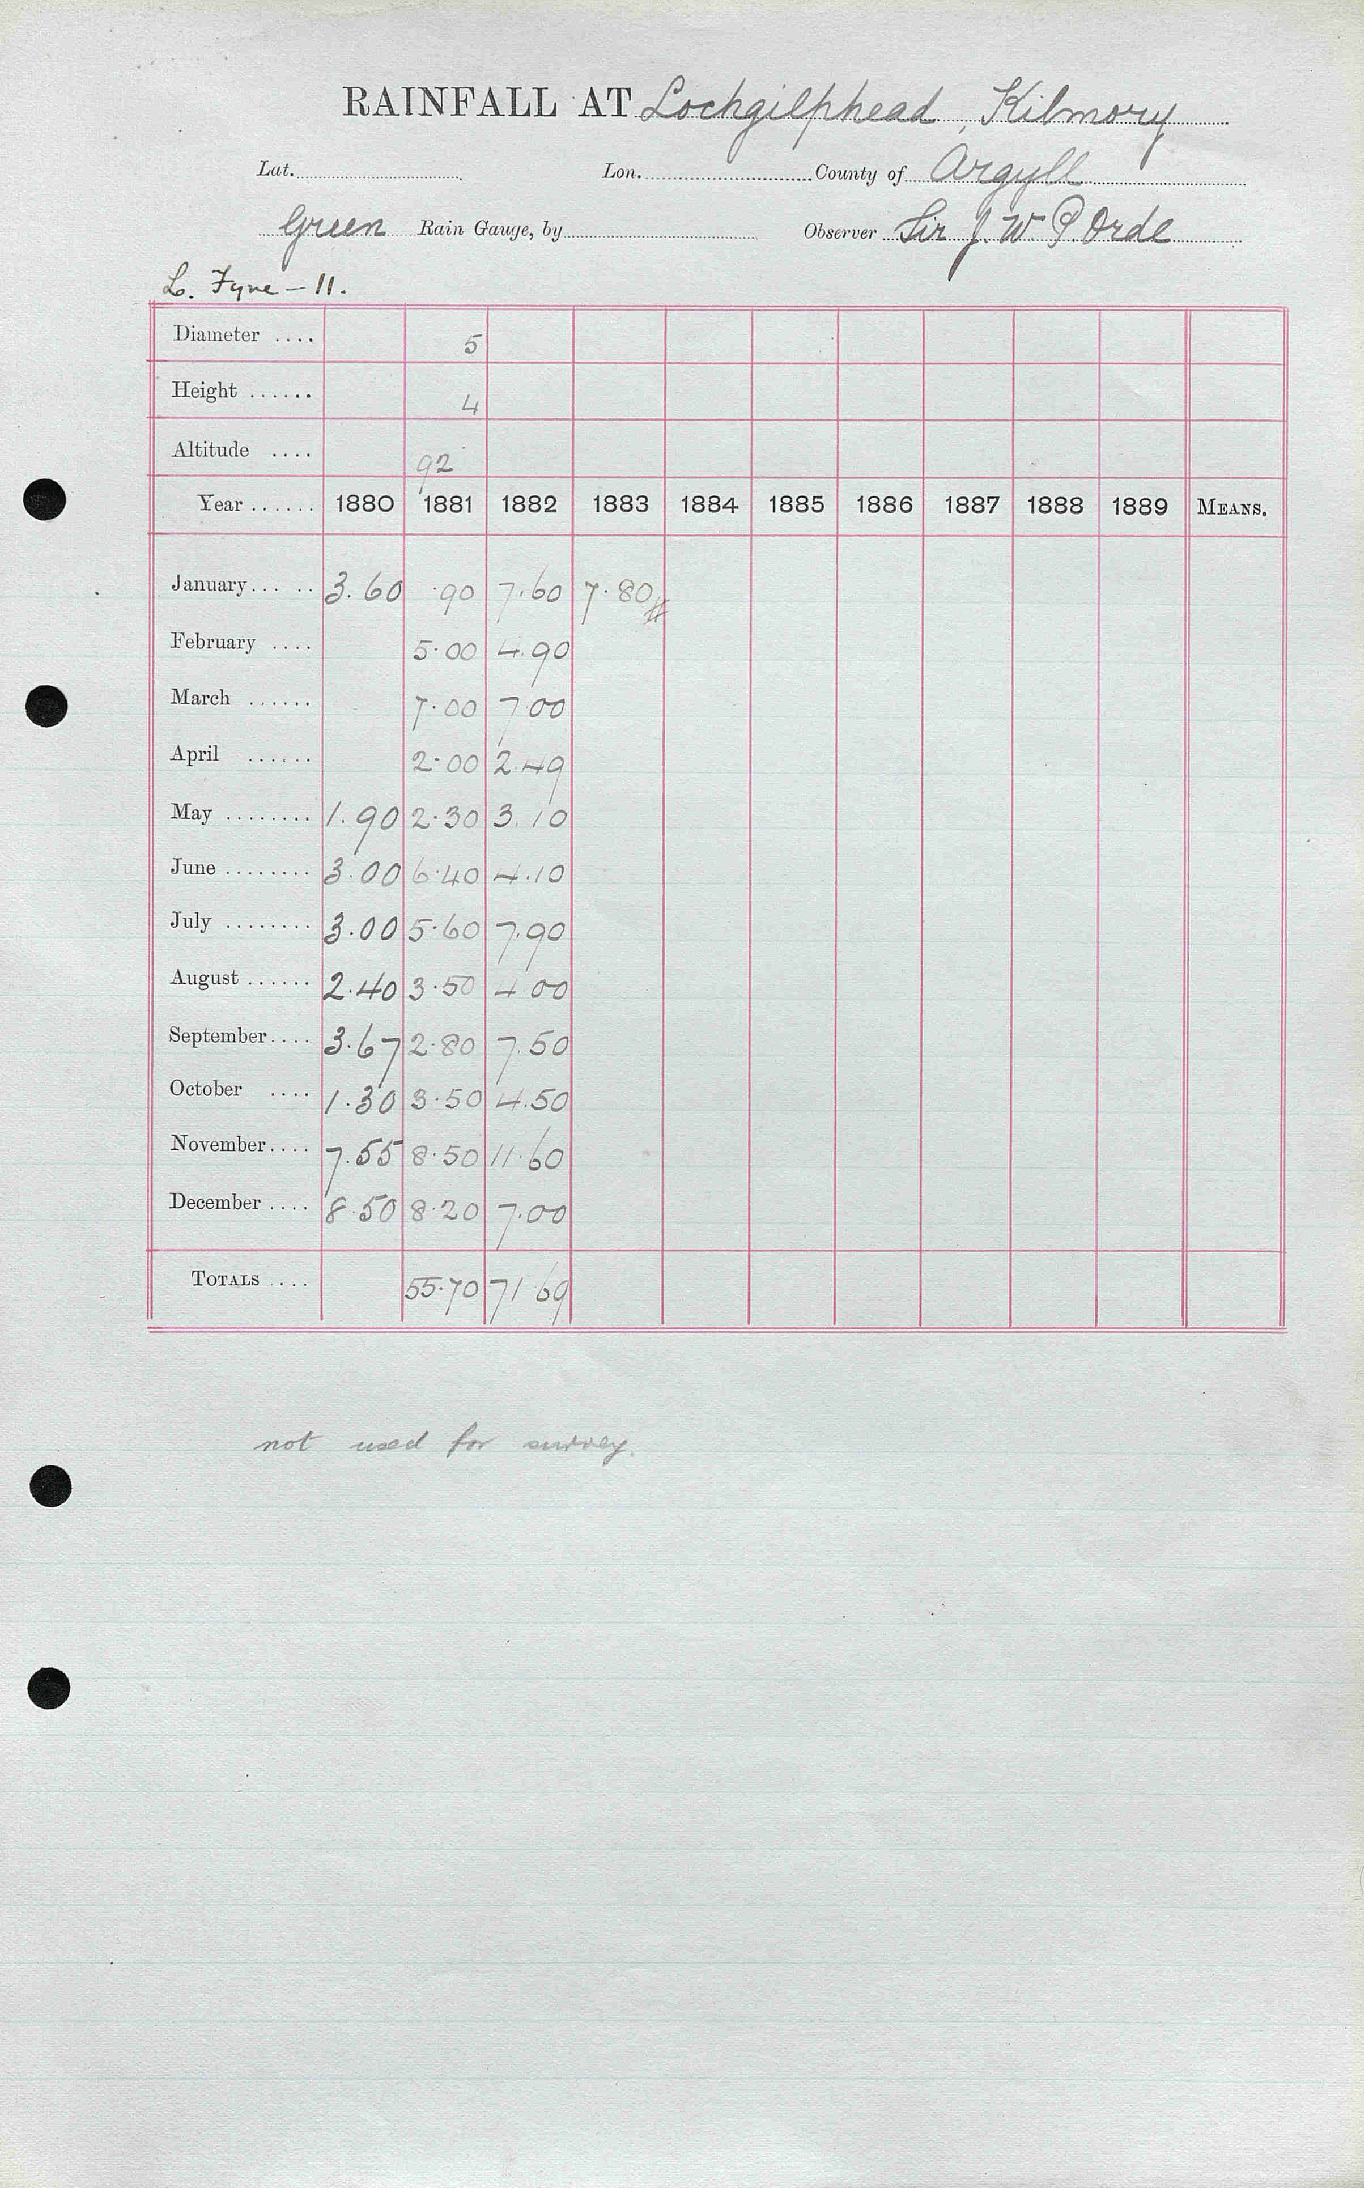 RAINFALL AT Lochgilphead, Kilmory
Lat. Lon. County of Argyll
Green Rain Gauge, by Observer Sir J. W. P. Orde
L. Fyne - 11.
Diameter .... 5
Height ...... 4
Altitude .... 92
Year ...... 1880 1881 1882 1883 1884 1885 1886 1887 1888 1889 MEANS.
January... .. 3.60 .90 7.60 7.80#
February .... 5.00 4.90
March ...... 7.00 7.00
April ...... 2.00 2.49
May ........ 1.90 2.30 3.10
June ........ 3.00 6.40 4.10
July ........ 3.00 5.60 7.90
August ...... 2.40 3.50 4 00
September.... 3.67 2.80 7.50
October .... 1.30 3.50 4.50
November.... 7.55 8.50 11.60
December .... 8.50 8.20 7.00
TOTALS .... 55.70 71.69
not used for survey.